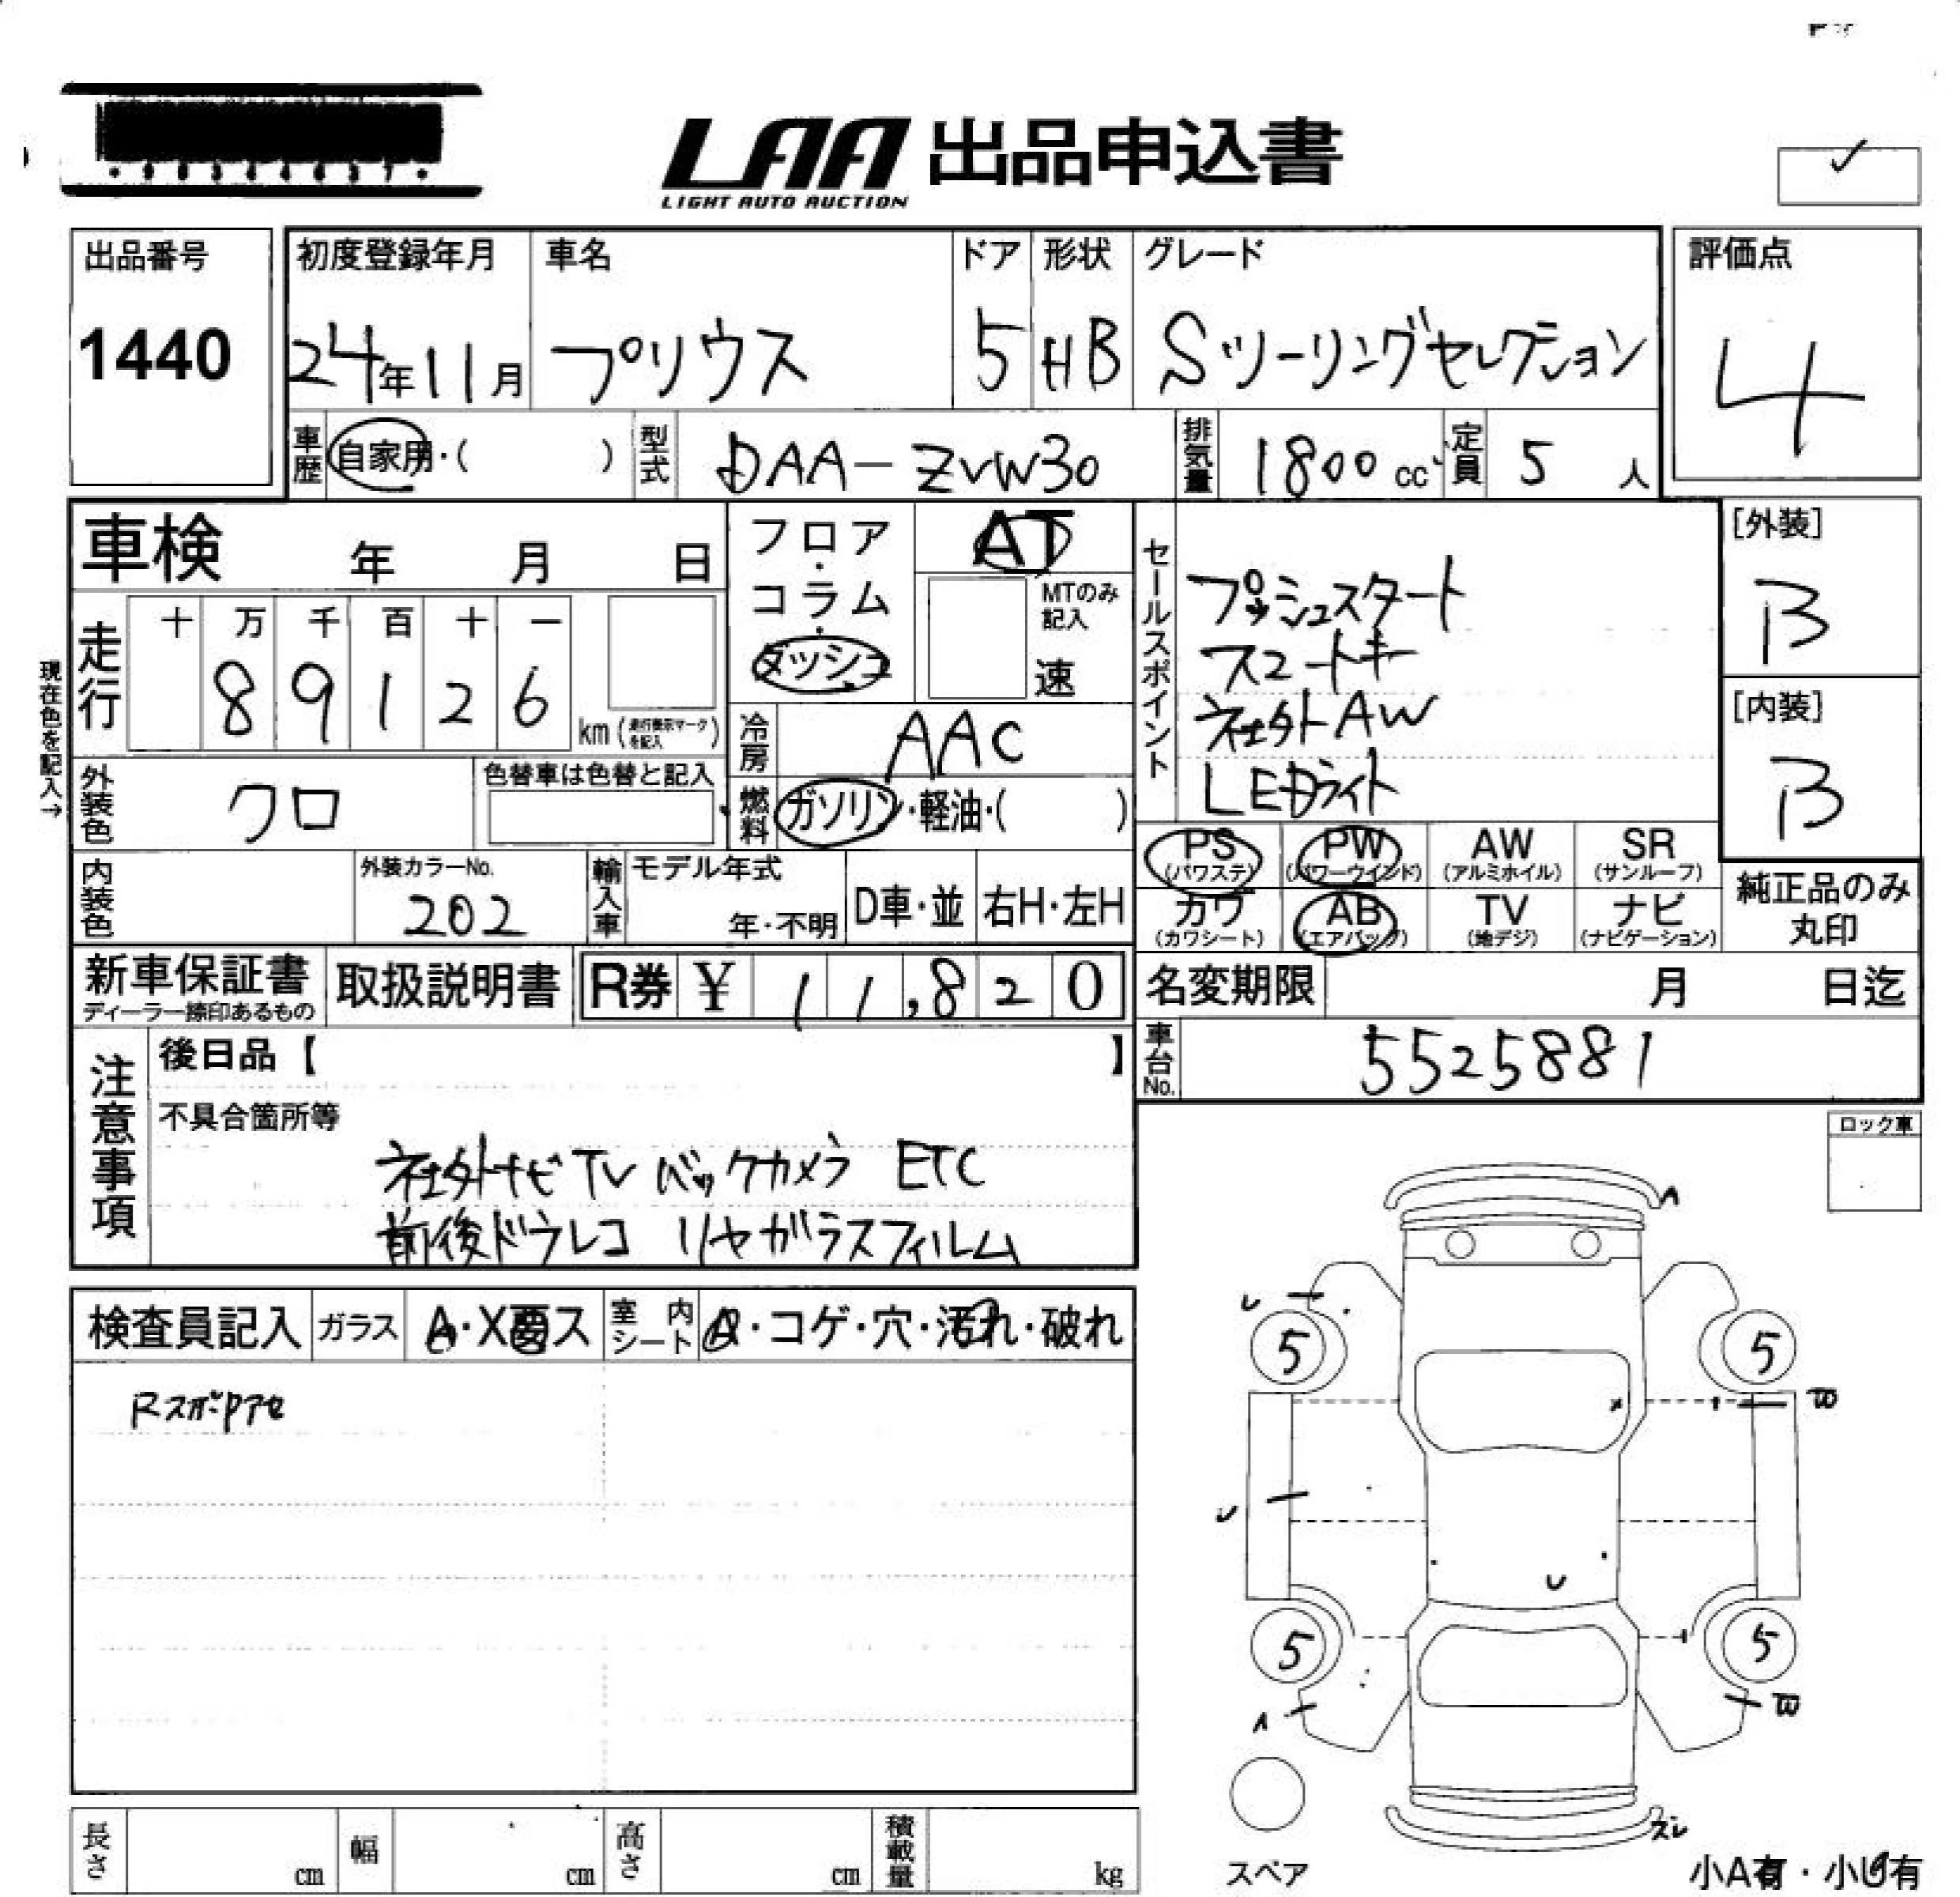 LAA 出品申込書
LIGHT AUTO AUCTION
出品番号
1440
初度登録年月
24年11月
車名
プリウス
ドア
5
形状
HB
グレード
Sツーリングセレクション
評価点
4
車歴
自家用・( )
型式
DAA-ZVW30
排気量
1800cc
定員
5人
車検 年 月 日
走行
十 万 千 百 十 一
8 9 1 2 6
km(走行表示マークを記入)
現在色を記入→
フロア・コラム・ダッシュ
AT
MTのみ記入
速
冷房
AAC
燃料
ガソリン・軽油・( )
セールスポイント
プッシュスタート
スマートキー
社外AW
LEDライト
[外装]
B
[内装]
B
外装色
クロ
色替車は色替と記入
内装色
外装カラーNo.
202
輸入車
モデル年式
年・不明
D車・並
右H・左H
PS
(パワステ)
PW
(パワーウインド)
AW
(アルミホイル)
SR
(サンルーフ)
カワ
(カワシート)
AB
(エアバッグ)
TV
(地デジ)
ナビ
(ナビゲーション)
純正品のみ
丸印
新車保証書
ディーラー捺印あるもの
取扱説明書
R券 ¥ 11,820
名変期限 月 日迄
車台No.
5525881
注意事項
後日品【 】
不具合箇所等
社外ナビTV バックカメラ ETC
前後ドラレコ リヤガラスフィルム
ロック車
検査員記入
ガラス
A・X要ス
室内シート
A・コゲ・穴・汚れ・破れ
RスポPアセ
A
U
5
5
W
U
U
5
5
A
W
ズレ
スペア
小A有・小U有
長さ cm
幅 cm
高さ cm
積載量 kg